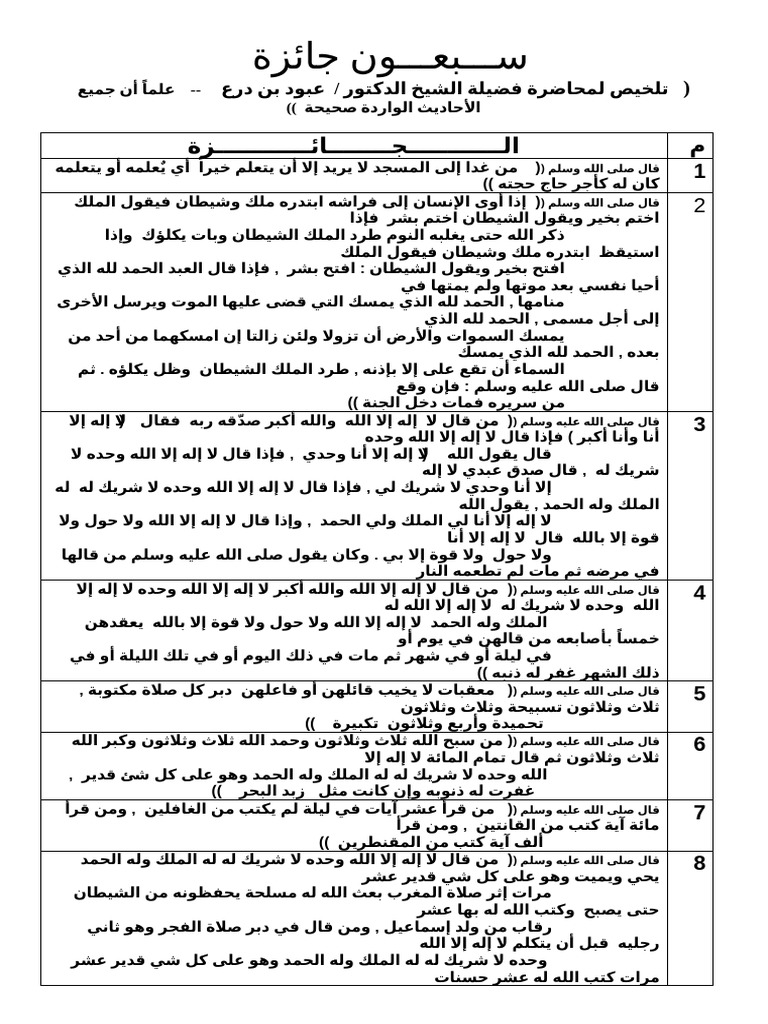 ســـبعـــون جائزة
( تلخيص لمحاضرة فضيلة الشيخ الدكتور / عبود بن درع -- علماً أن جميع
الأحاديث الواردة صحيحة ))
م الـــــــــــجـــــــــائـــــــــــــزة
1 قال صلى الله وسلم (( من غدا إلى المسجد لا يريد إلا أن يتعلم خيراً أي يٌعلمه أو يتعلمه
كان له كأجر حاج حجته ))
2 قال صلى الله وسلم (( إذا أوى الإنسان إلى فراشه ابتدره ملك وشيطان فيقول الملك
اختم بخير ويقول الشيطان اختم بشر فإذا
ذكر الله حتى يغلبه النوم طرد الملك الشيطان وبات يكلؤك وإذا
استيقظ ابتدره ملك وشيطان فيقول الملك
افتح بخير ويقول الشيطان : افتح بشر , فإذا قال العبد الحمد لله الذي
أحيا نفسي بعد موتها ولم يمتها في
منامها , الحمد لله الذي يمسك التي قضى عليها الموت ويرسل الأخرى
إلى أجل مسمى , الحمد لله الذي
يمسك السموات والأرض أن تزولا ولئن زالتا إن امسكهما من أحد من
بعده , الحمد لله الذي يمسك
السماء أن تقع على إلا بإذنه , طرد الملك الشيطان وظل يكلؤه . ثم
قال صلى الله عليه وسلم : فإن وقع
من سريره فمات دخل الجنة ))
3 قال صلى الله عليه وسلم (( من قال لا إله إلا الله والله أكبر صدّقه ربه فقال ( لا إله إلا
أنا وأنا أكبر ) فإذا قال لا إله إلا الله وحده
قال يقول الله ( لا إله إلا أنا وحدي , فإذا قال لا إله إلا الله وحده لا
شريك له , قال صدق عبدي لا إله
إلا أنا وحدي لا شريك لي , فإذا قال لا إله إلا الله وحده لا شريك له له
الملك وله الحمد , يقول الله
لا إله إلا أنا لي الملك ولي الحمد , وإذا قال لا إله إلا الله ولا حول ولا
قوة إلا بالله قال لا إله إلا أنا
ولا حول ولا قوة إلا بي . وكان يقول صلى الله عليه وسلم من قالها
في مرضه ثم مات لم تطعمه النار
4 قال صلى الله عليه وسلم (( من قال لا إله إلا الله والله أكبر لا إله إلا الله وحده لا إله إلا
الله وحده لا شريك له لا إله إلا الله له
الملك وله الحمد لا إله إلا الله ولا حول ولا قوة إلا بالله يعقدهن
خمساً بأصابعه من قالهن في يوم أو
في ليلة أو في شهر ثم مات في ذلك اليوم أو في تلك الليلة أو في
ذلك الشهر غفر له ذنبه ))
5 قال صلى الله عليه وسلم (( معقبات لا يخيب قائلهن أو فاعلهن دبر كل صلاة مكتوبة ,
ثلاث وثلاثون تسبيحة وثلاث وثلاثون
تحميدة وأربع وثلاثون تكبيرة ))
6 قال صلى الله عليه وسلم (( من سبح الله ثلاث وثلاثون وحمد الله ثلاث وثلاثون وكبر الله
ثلاث وثلاثون ثم قال تمام المائة لا إله إلا
الله وحده لا شريك له له الملك وله الحمد وهو على كل شئ قدير ,
غفرت له ذنوبه وإن كانت مثل زبد البحر ))
7 قال صلى الله عليه وسلم (( من قرأ عشر آيات في ليلة لم يكتب من الغافلين , ومن قرأ
مائة آية كتب من القانتين , ومن قرأ
ألف آية كتب من المقنطرين ))
8 قال صلى الله عليه وسلم (( من قال لا إله إلا الله وحده لا شريك له له الملك وله الحمد
يحي ويميت وهو على كل شي قدير عشر
مرات إثر صلاة المغرب بعث الله له مسلحة يحفظونه من الشيطان
حتى يصبح وكتب الله له بها عشر
رقاب من ولد إسماعيل , ومن قال في دبر صلاة الفجر وهو ثاني
رجليه قبل أن يتكلم لا إله إلا الله
وحده لا شريك له له الملك وله الحمد وهو على كل شي قدير عشر
مرات كتب الله له عشر حسنات